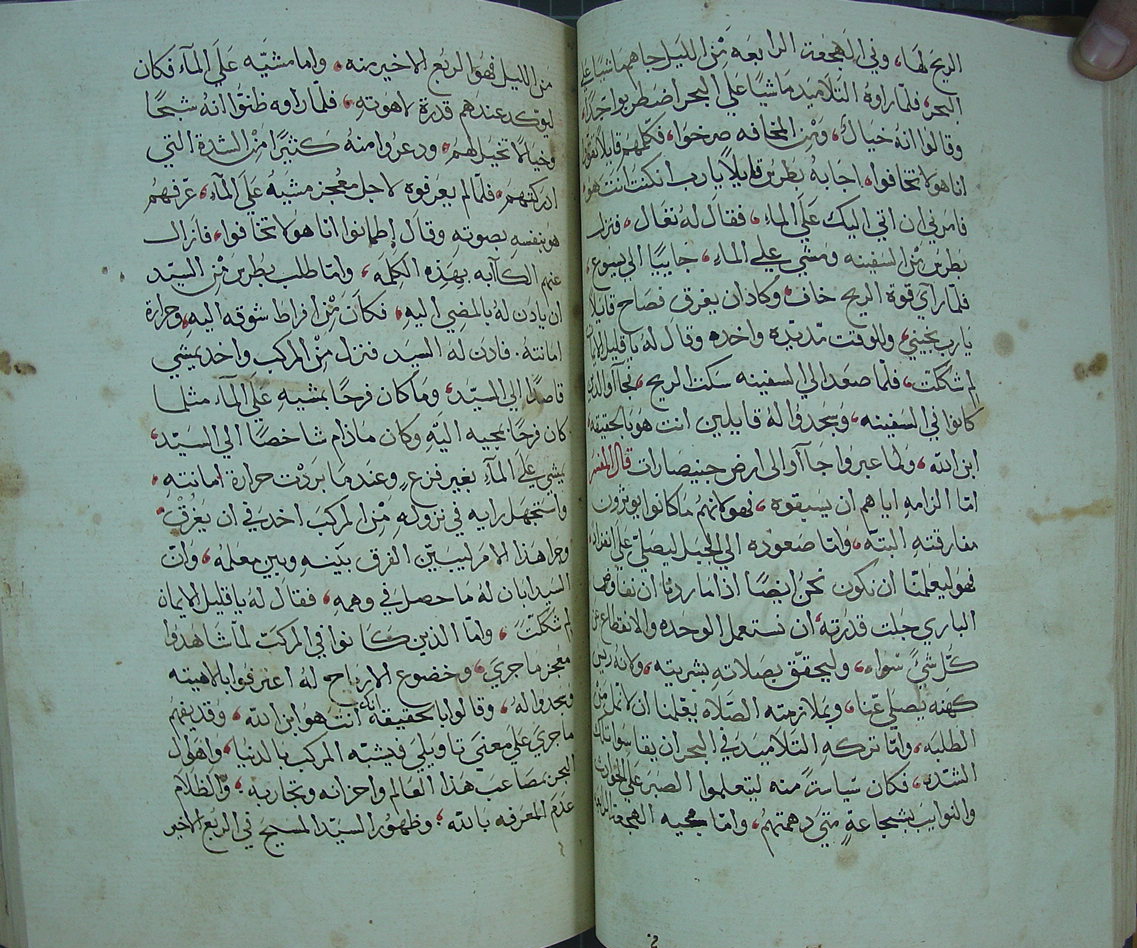 الريح لها، وفي الهجعة الرابعه من الليل جاهم ماشيا علي
البحر، فلما راوه التلاميد ماشيًا علي البحر اضطربوا جدًا،
وقالوا انه خيال، ومن المخافه صرخوا، فكلمهم قايلًا تقوا
انا هو لا تخافوا، اجابه بطرس قايلًا يارب ان كنت انت هو
فامرني ان اتي اليك علي الماء، فقال له تعال، فنزل
بطرس من السفينه ومشي علي الماء، جاييًا الي يسوع،
فلما راي قوة الريح خاف، وكاد ان يغرق فصاح قايلًا
يارب نجيني، وللوقت مد يده واخده وقال له يا قليل الامانه
لم شككت، فلما صعد الي السفينه سكت الريح، فجآوا الدين
كانوا في السفينه، وسجدوا له قايلين انت هو بالحقيقه
ابن الله، ولما عبروا جاآوا الي ارض جنيصارات قال المفسر
امّا الزامه اياهم ان يسبقوه، فهو لانهم ما كانوا يوثرون
مفارقته البتّه، وامّا صعوده الي الجبل ليصلّي علي انفراد
فهو ليعلمنا ان نكون نحن ايضًا ادا ما اردنا ان نفاوض
الباري جلت قدرته، ان نستعمل الوحده والانقطاع عن
كل شيءٍ سواه، وليحقق بصلاته بشريته، ولانه ريس
كهنه يصلي عنا، وبملازمته الصلاه يعلمنا ان لا نمل من
الطلبه، وامّا تركه التلاميد في البحر ان يقاسوا تلك
الشده، فكان سياسةً منه ليتعلموا الصبر علي الحوادث
والنوايب بشجاعةٍ متي دهمتهم، وامّا مجيه الهجعه الرابعه
من الليل فهو الربع الاخير منه، واما مشيّه علي المآء فكان
ليوكد عندهم قدرة لاهوته، فلما راوه ظنوا انه شبحًا
وخيالًا تخيل لهم، ودعروا منه كثيرًا من الشدة التي
ادركتهم، فلمّا لم يعرفوه لاجل معجز مشيه علي المآء، عرفهم
هو بنفسه بصوته وقال إطمانوا انا هو لا تخافوا، فازال
عنهم الكآبه بهذه الكلمه، وامّا طلب بطرس من السيّد
ان يادن له بالمضي اليه، فكان من افراط شوقه اليه، وحرارة
امانته. فادن له السيد فنزل من المركب واخد يمشي
قاصدًا الي السيّد، وما كان فرحًا بمشيه علي المآء مثلما
كان فرحًا بمجيه اليّه وكان ما دام شاخصًا الي السيّد،
يمشي علي المآء بغير فزعٍ وعند ما بردت حرارة امانته،
واستجهل رايه في نزوله من المركب اخد في ان يغرق،
وجرا هذا الامر ليبيّن الفرق بينه وبين معلمه، وان
السيد ابان له ما حصل في وهمه، فقال له يا قليل الايمان
لم شككت، وامّا الذين كانوا في المركب لمّا شاهدوا
معجز ما جري، وخضوع الارياح له اعترفوا بلاهيته
وسجدوا له، وقالوا بالحقيقة انك أنت هو ابن الله، وقد يفهم
ما جري علي معني تاويلي فيشبّه المركب بالدنيا، واهوال
البحر بمصاعب هذا العالم واحزانه وتجاربه، والظلام
عدم المعرفه بالله، وظهور السيّد المسيح في الربع الاخير